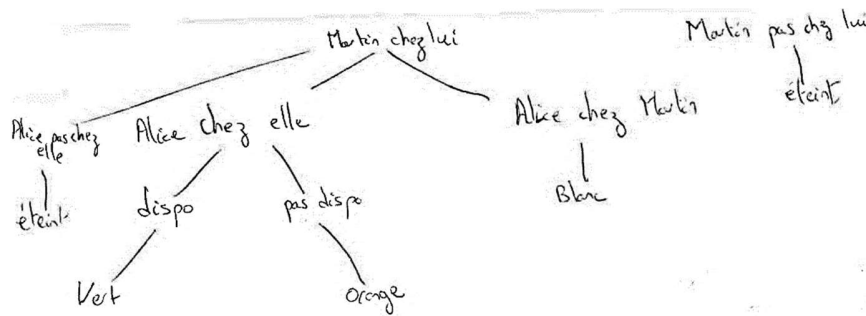 Martin chez lui
Martin pas chez lui
Alice pas chez
elle
Alice chez elle
Alice chez Martin
éteint
éteint
dispo
pas dispo
Blanc
Vert
Orange